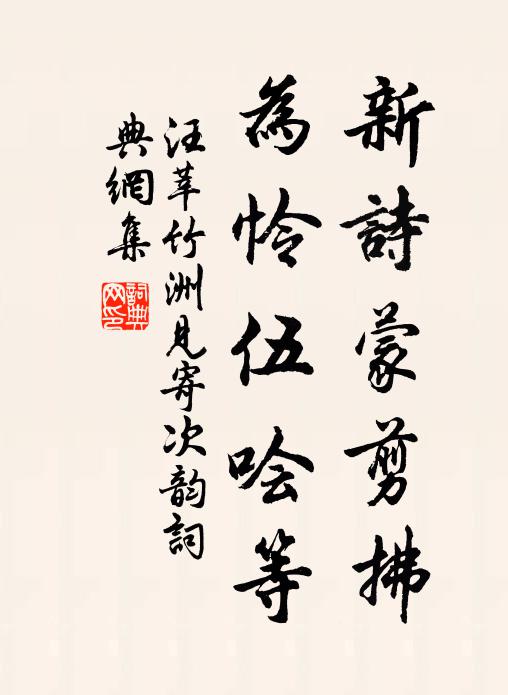 新詩蒙剪拂
為怜伍哙等
汪莘竹洲見寄次韵詞
典網集
詞典
网印